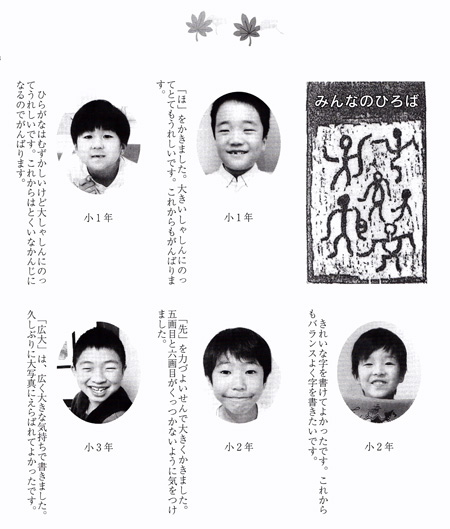 みんなのひろば
「ほ」をかきました。大きいしゃしんにのっ
てとてもうれしいです。これからもがんばりま
す。
小1年
ひらがなはむずかしいけど大しゃしんにのっ
てうれしいです。これからはとくいなかんじに
なるのでがんばります。
小1年
きれいな字を書けてよかったです。これから
もバランスよく字を書きたいです。
小2年
「先」を力づよいせんで大きくかきました。
五画目と六画目がくっつかないように気をつけ
ました。
小2年
「広大」は、広く大きな気持ちで書きました。
久しぶりに大写真にえらばれてよかったです。
小3年